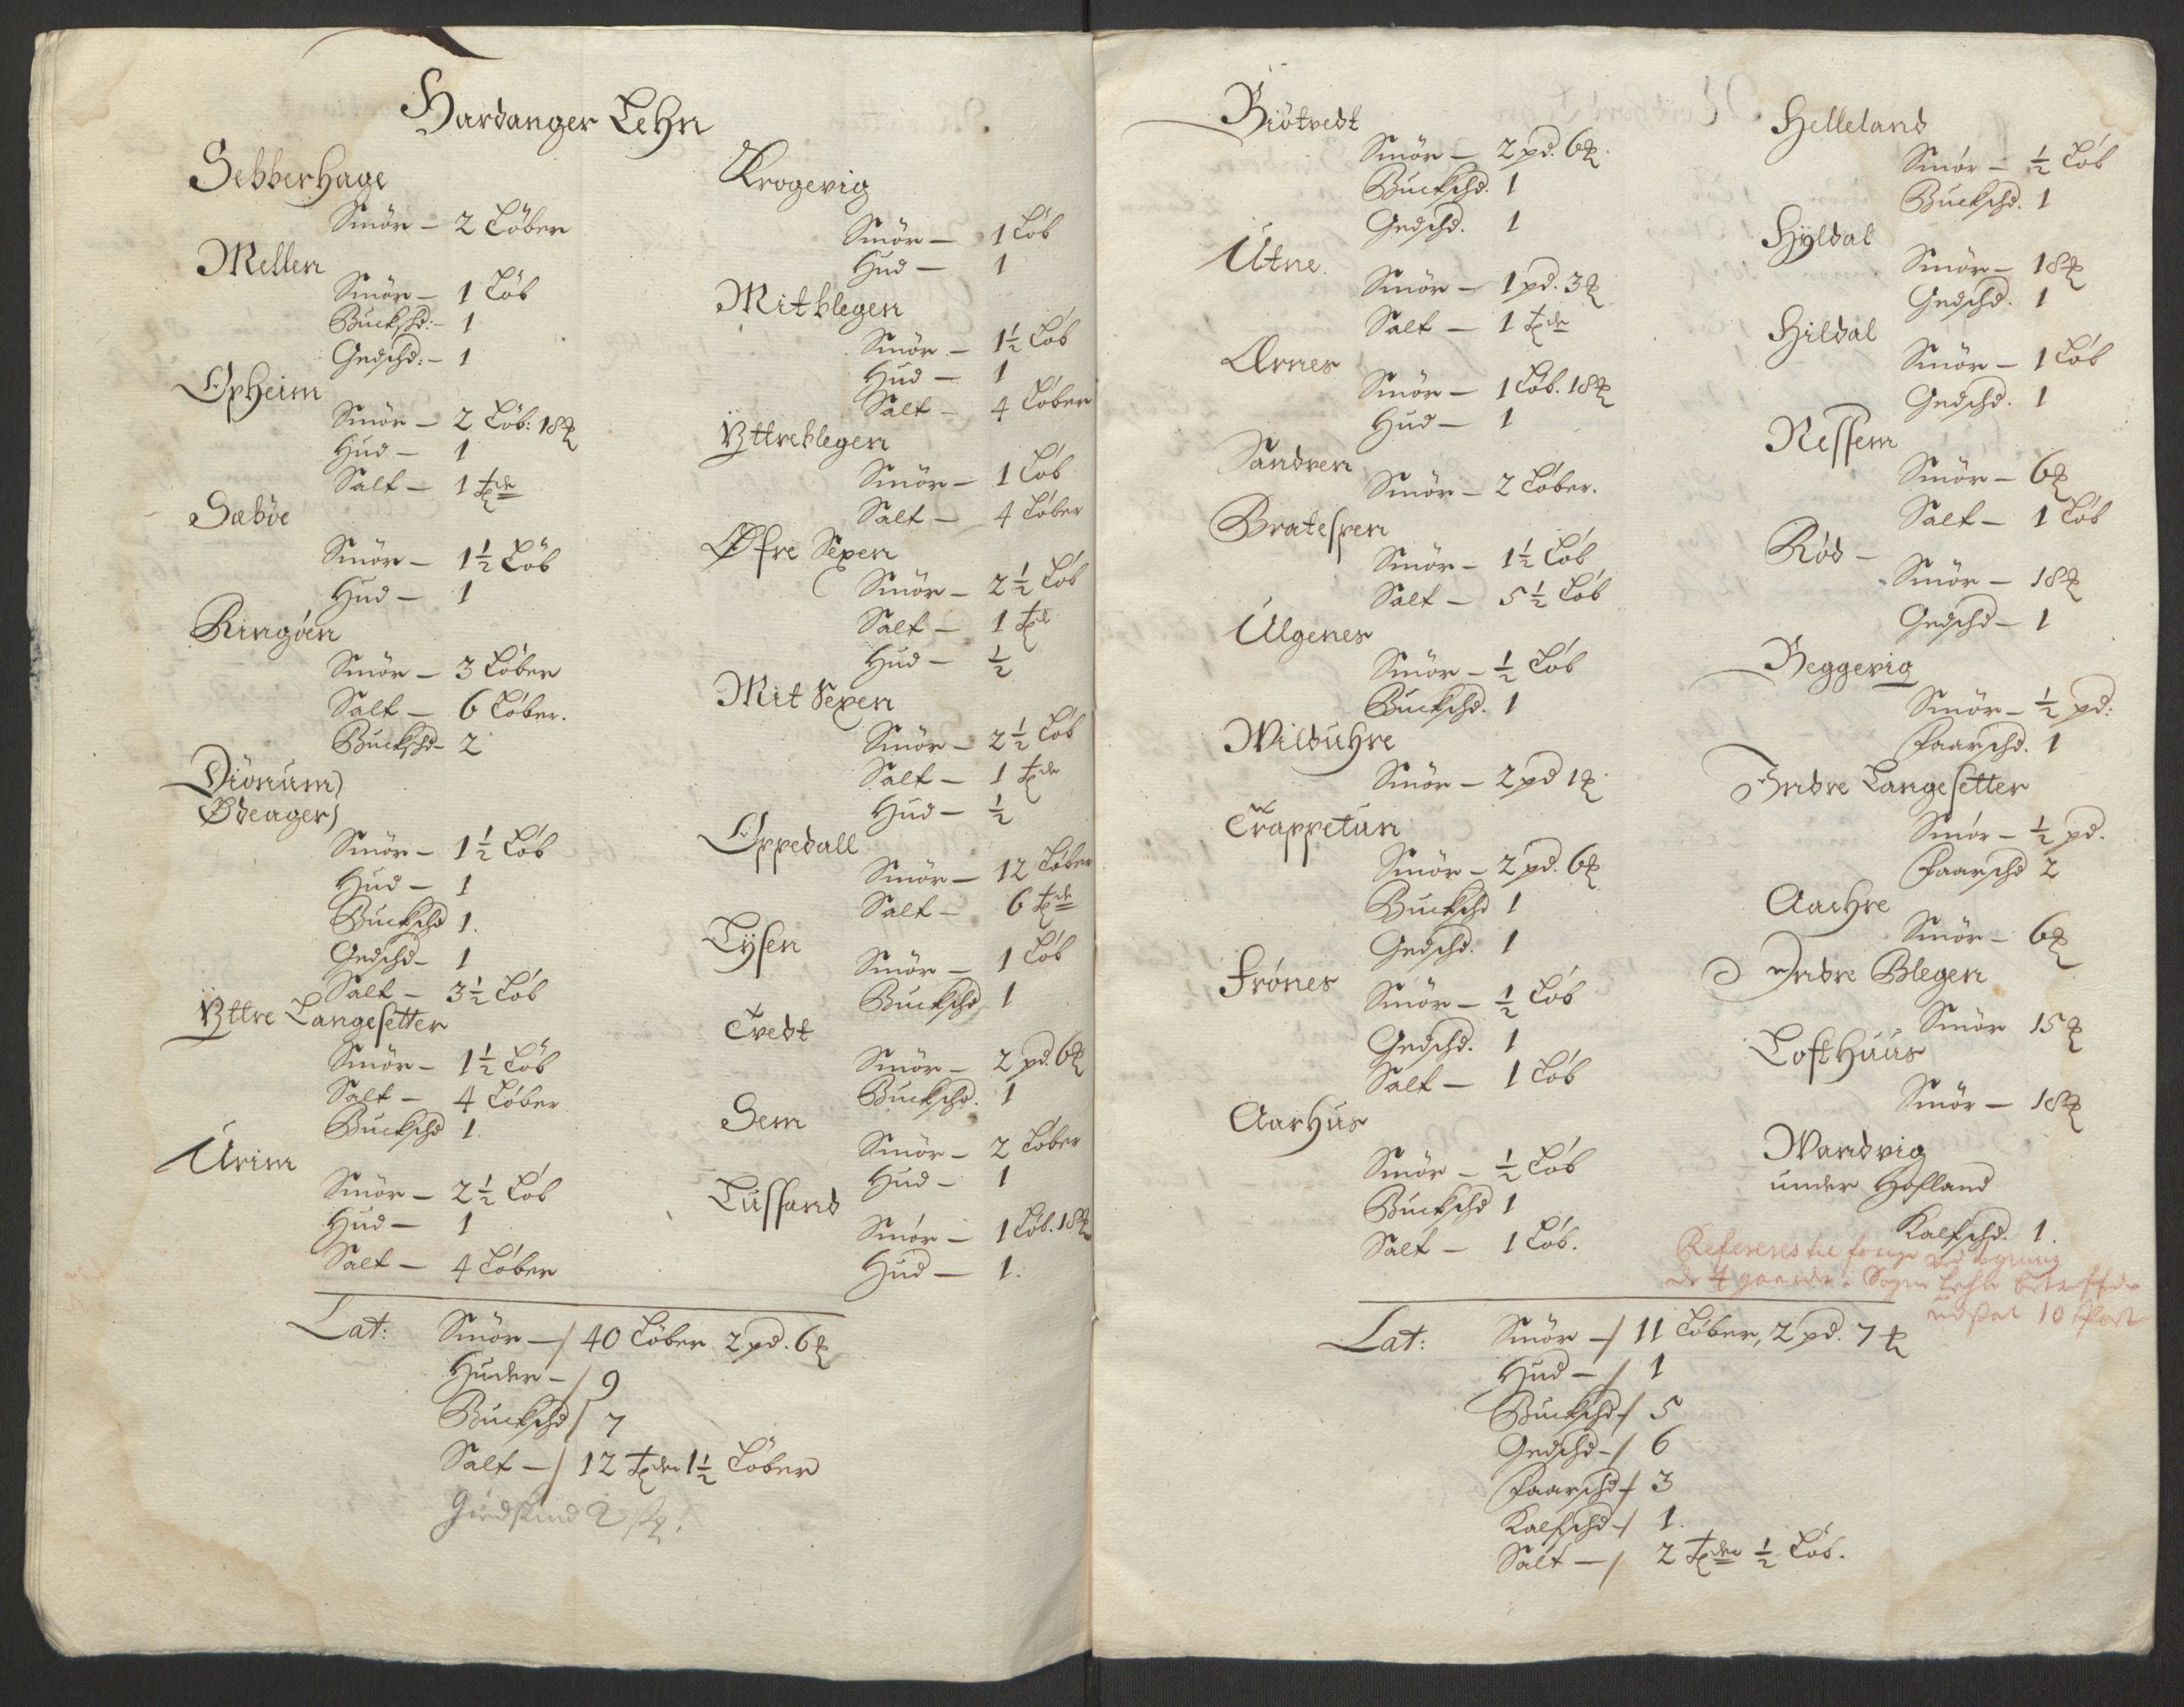 Hardanger Lehn
Sebberhage
Smör – 2 Löber
Mellen
Smör – 1 Löb
Buckschd: – 1
Gedschd: – 1
Opheim
Smör – 2 Löb: 18 ℔
Hud – 1
Salt – 1 tde
Sæböe
Smör – 1½ Löb
Hud – 1
Ringöen
Smör – 3 Löber
Salt – 6 Löber.
Buckschd – 2
Diönum)
Ødeager)
Smör – 1½ Löb
Hud – 1
Buckschd 1.
Gedschd – 1
Salt – 3½ Löb
Yttre Langesetter
Smör – 1½ Löb
Salt – 4 Löber
Buckschd 1.
Urim
Smör – 2½ Löb
Hud – 1
Salt – 4 Löber
Krogevig
Smör – 1 Löb
Hud – 1
Mitblegen
Smör – 1½ Löb
Hud – 1
Salt – 4 Löber
Yttreblegen
Smör – 1 Löb
Salt – 4 Löber
Øfre Sexen
Smör – 2½ Löb
Salt – 1 td
Hud – ½
Mit Sexen
Smör – 2½ Löb
Salt – 1 tde
Hud – ½
Oppedall
Smör – 12 Löber
Salt – 6 tde
Lysen
Smör – 1 Löb
Buckschd 1
Tvedt
Smör – 2 pd. 6 ℔
Buckschd. 1
Sem
Smör – 2 Löber
Hud – 1
Lussand
Smör – 1 Löb. 18 ℔
Hud – 1.
Lat: Smör – / 40 Löber 2 pd. 6 ℔
Huder – / 9
Buckschd / 7
Salt – / 12 tder 1½ Löber
Giedskind 2 st.
Biötvedt
Smör – 2 pd. 6 ℔.
Buckschd. 1
Gedschd. 1
Utne.
Smör – 1 pd. 3 ℔
Salt – 1 tde
Ærnes
Smör – 1 Löb. 18 ℔
Hud – 1
Sandven
Smör – 2 Löber.
Bratespen
Smör – 1½ Löb
Salt – 5½ Löb
Ulgenes
Smör – ½ Löb
Buckschd. 1
Wilduhre
Smör – 2 pd 1 ℔.
Trappetun
Smör – 2 pd. 6 ℔
Buckschd 1
Gedschd. 1
Frönes
Smör – ½ Löb
Gedschd. 1
Salt – 1 Löb
Aarhus
Smör – ½ Löb
Buckschd 1
Salt – 1 Löb.
Helleland
Smör – ½ Löb
Buckschd. 1
Hyldal
Smör – 18 ℔
Gedschd. 1
Hildal
Smör – 1 Löb
Gedschd. 1
Nessem
Smör – 6 ℔
Salt – 1 Löb
Röd –
Smör – 18 ℔
Gedschd – 1
Beggevig
Smör – ½ pd:
Faarschd. 1
Indre Langesetter
Smör – ½ pd.
Faarschd 2
Aachre
Smör – 6 ℔
Indre Blegen
Smör 15 ℔
Lofthuus
Smör – 18 ℔
Wandvig
under Hofland
Kalfschd. 1.
Refereres til
10 Post
Lat: Smör – / 11 Löber, 2 pd. 7 ℔
Hud – / 1
Buckschd / 5
Gedschd – / 6
Faarschd / 3
Kalfschd / 1.
Salt – / 2 tder ½ Löb.